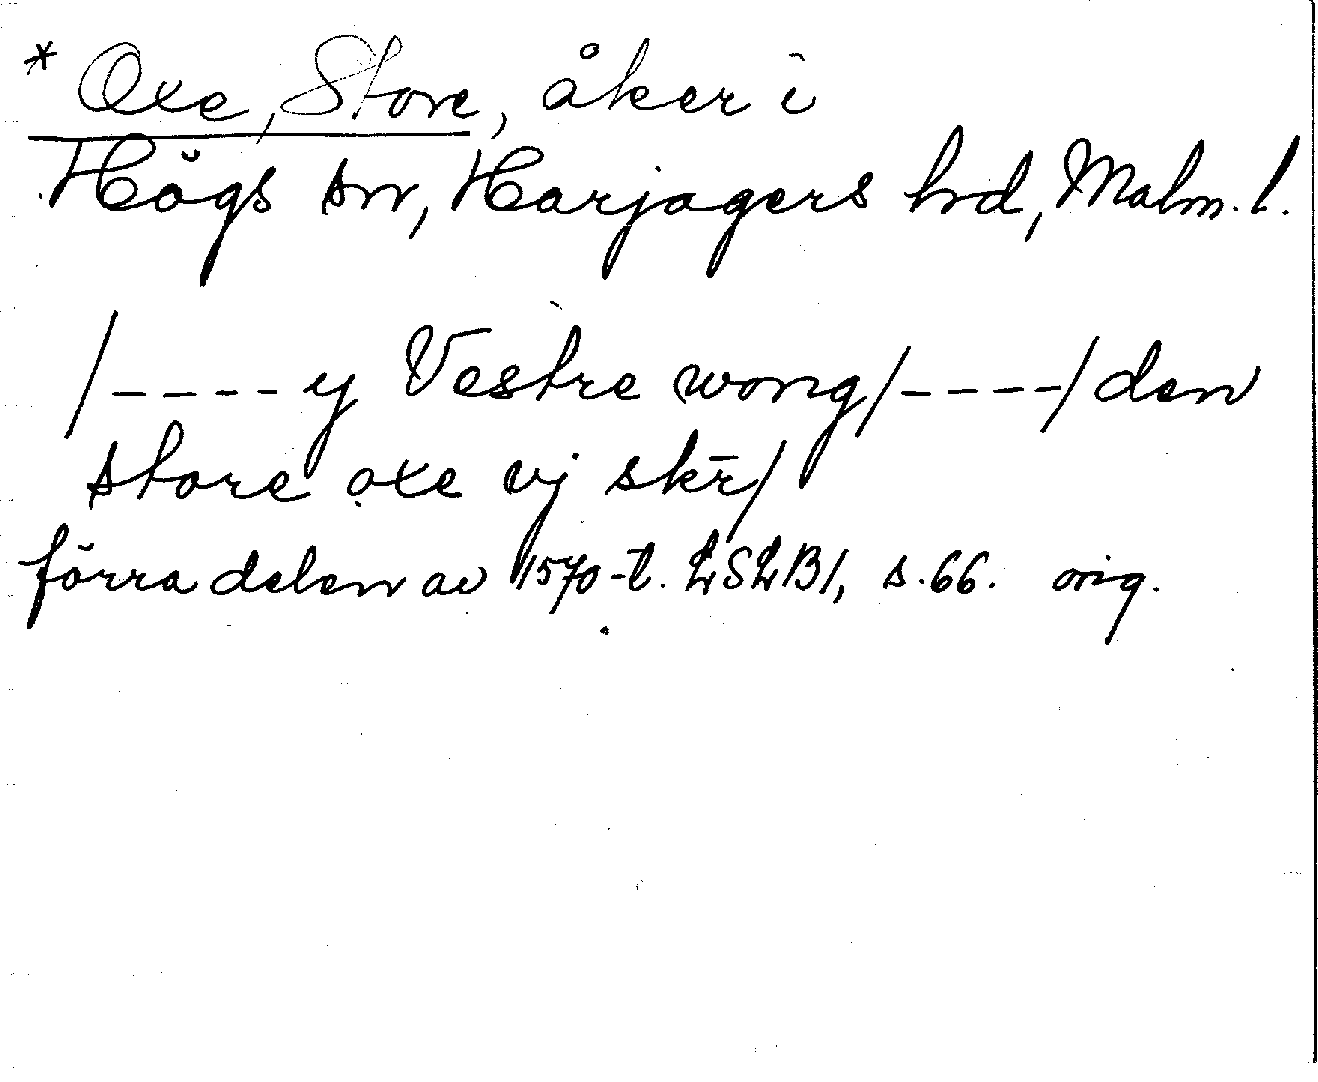 * Oxe, Store, åker i
Högs sn, Harjagers hd, Malm. l.
/---- y Vestre wong/----/den
store oxe vj skr̄/
förra delen av 1570-t. LSLB1, s. 66. orig.